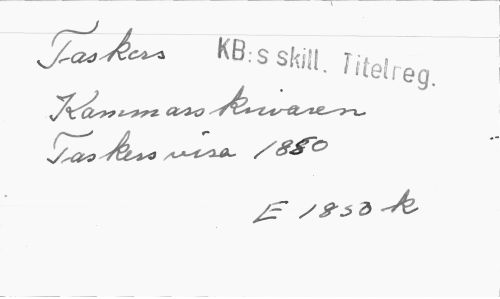 Taskers KB:s skill. Titelreg.
Kammarskrivaren
Taskers visa 1880
E 1850 k